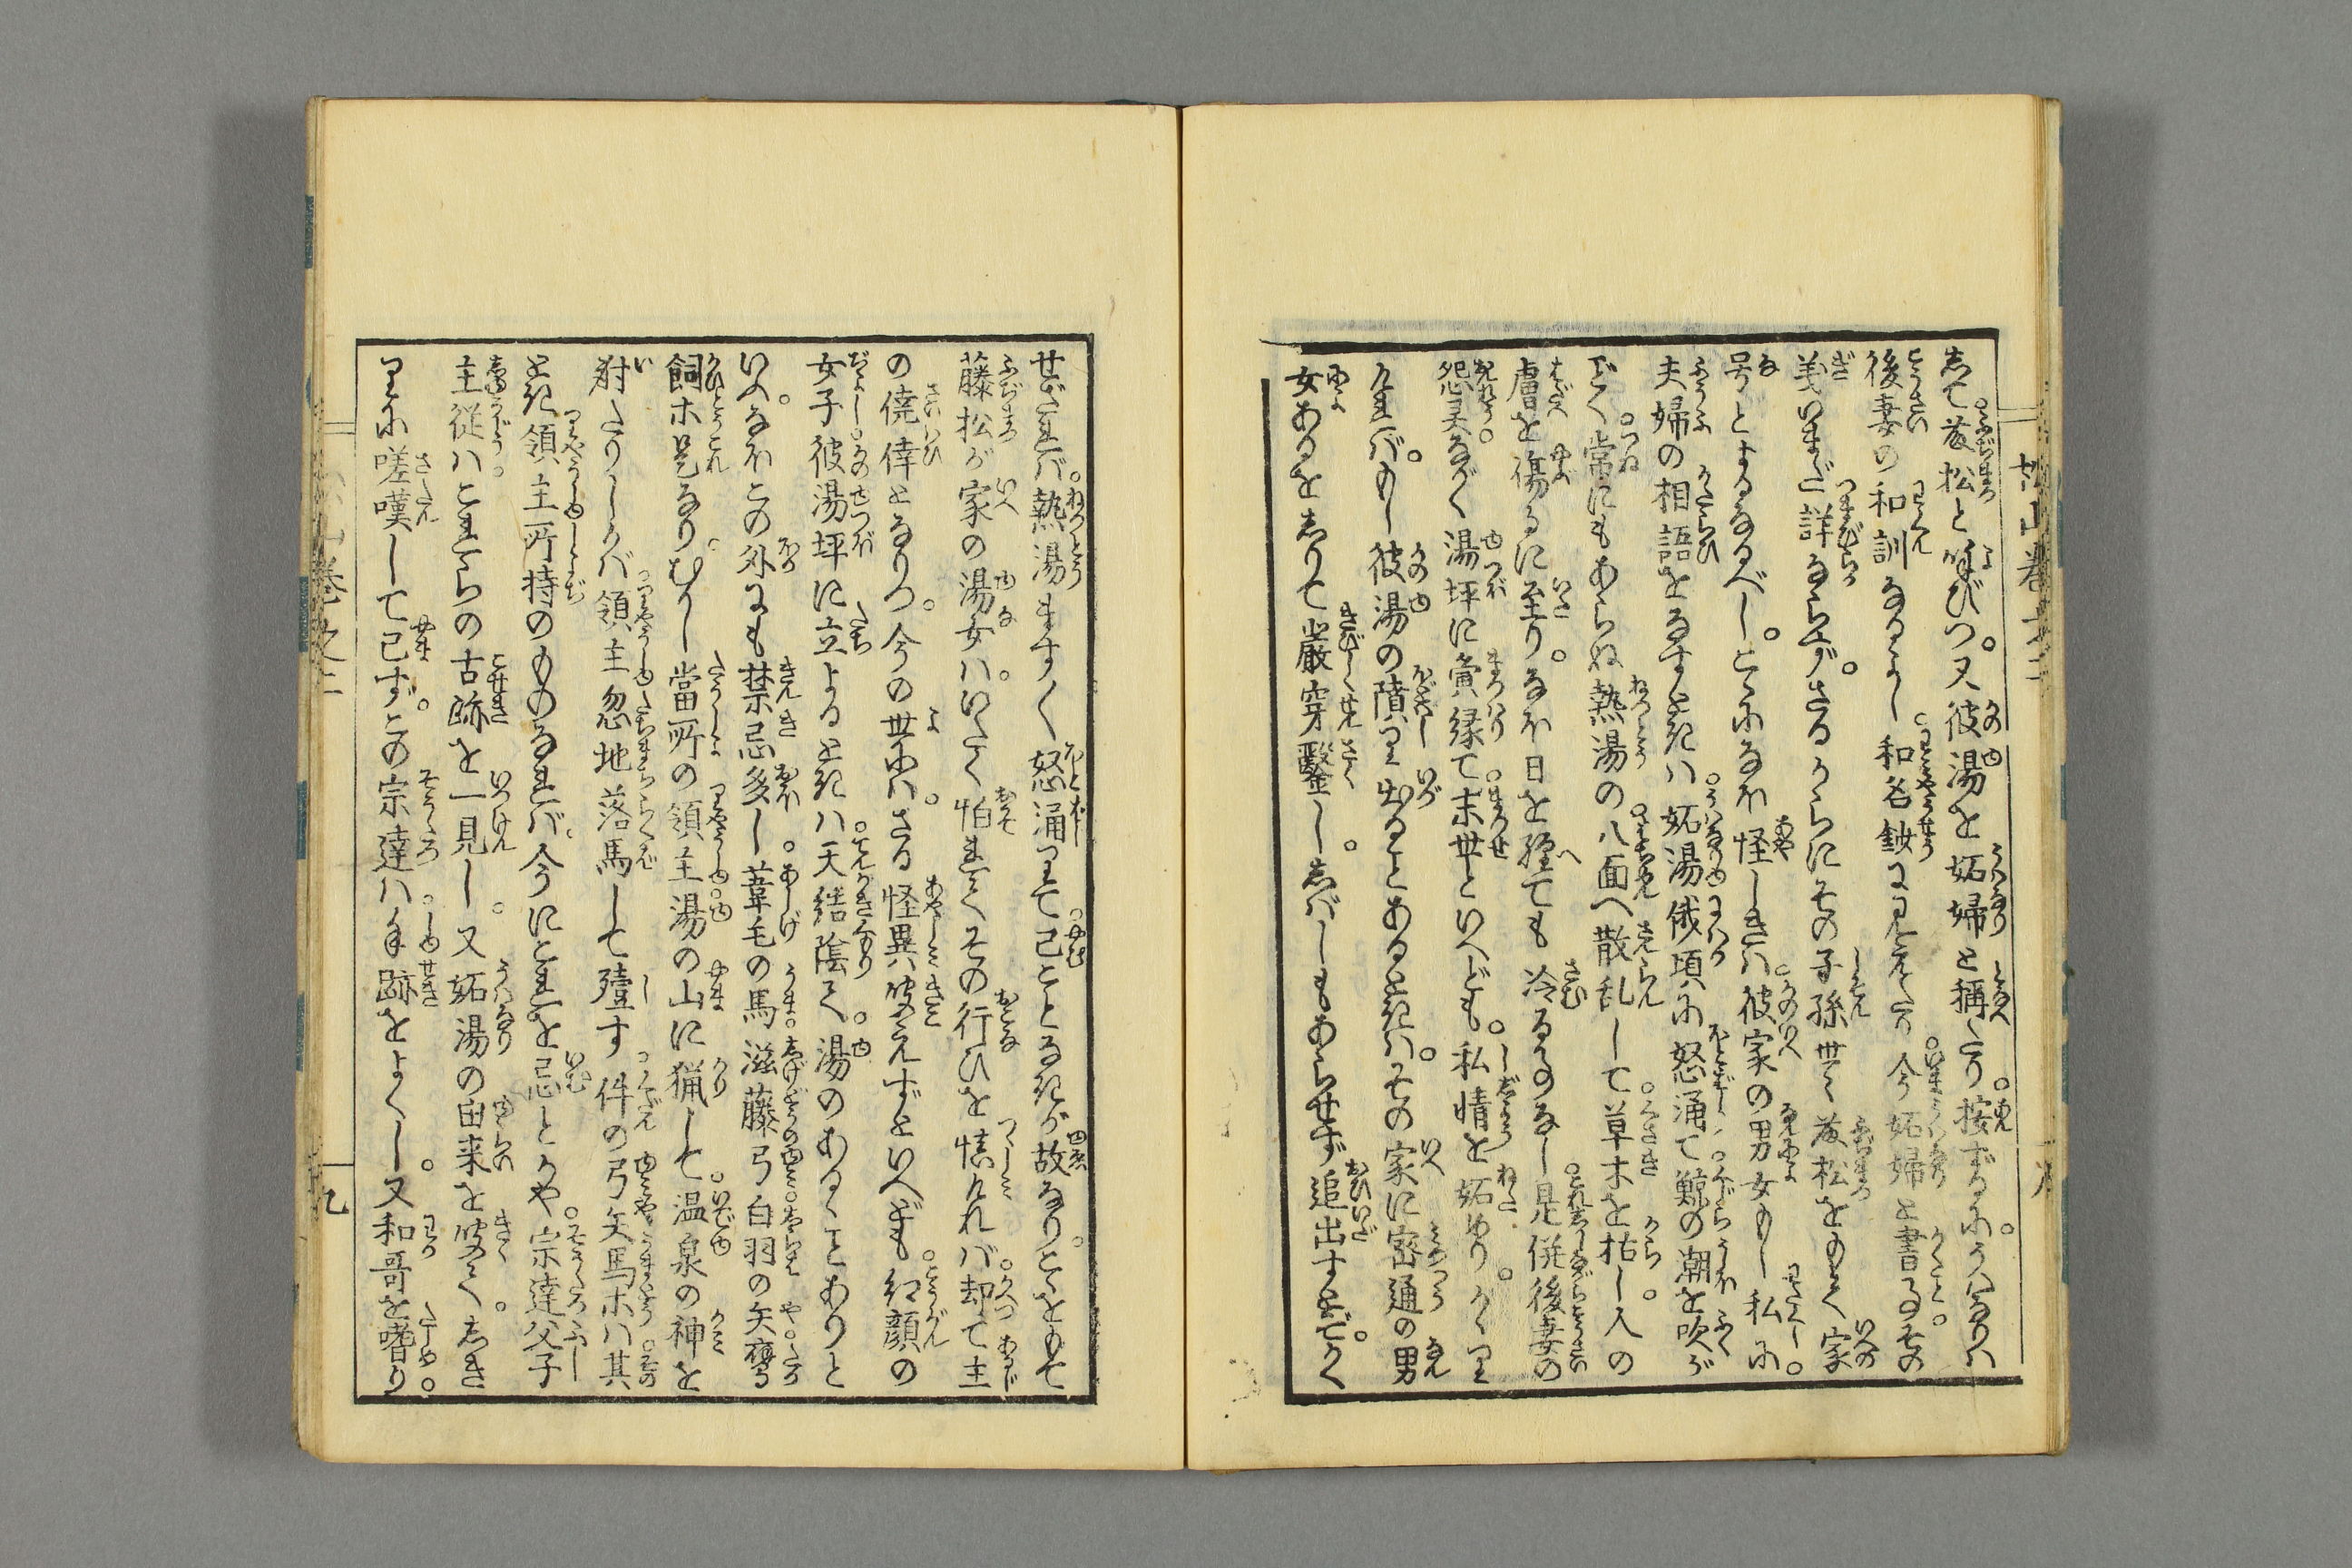 して藤松と呼びつ。又彼湯を妬婦と称へたり。按ずるに。うはなりハ
後妻の和訓なるよし。和名鈔に見えたり。今妬婦と書るその
義いまだ詳ならず。さるからにその子孫世〻藤松をもて家
号とするなるべし。こゝになほ怪しきハ彼家の男女もし私に
夫婦の相語をなすときハ妬湯俄頃に怒涌て鯨の潮を吹が
ごとく常にもあらぬ熱湯の八面へ散乱して草木を枯し人の
膚を傷るに至り。なほ日を歴ても冷るものなし是併後妻の
怨灵ながく湯坪に夤縁て末世といへども。私情を妬めり。かゝり
ければ。もし彼湯の隫り出ることあるときハ。その家に密通の男
女あるをしりて厳穿鑿し。しばしもあらせず追出すをどかく
せざれば。熱湯ます〳〵怒涌りて已ことなきが故なり。こゝをもて
藤松が家の湯女ハ。いたく怕れてその行ひを慎ければ却て主
の僥倖となりつ。今の世にハ。さる怪異ハ聞えずといへども紅顔の
女子彼湯坪に立よるときハ天結陰て。湯のあるゝことありと
いふ。なほこの外にも禁忌多し葦毛の馬滋藤弓白羽の矢鷹
飼ホ是なりむかし當所の領主湯の山に猟して。温泉の神を
射たりしかバ領主忽地落馬して殪す件の弓矢馬ホハ其
とき領主所持のものなれバ今にこれを忌とかや宗達父子
主従ハこれらの古跡を一見し。又妬湯の由来を聞て。しき
りに嗟嘆して已ず。この宗達ハ手跡をよくし。又和哥を嗜り。
巻之二
九